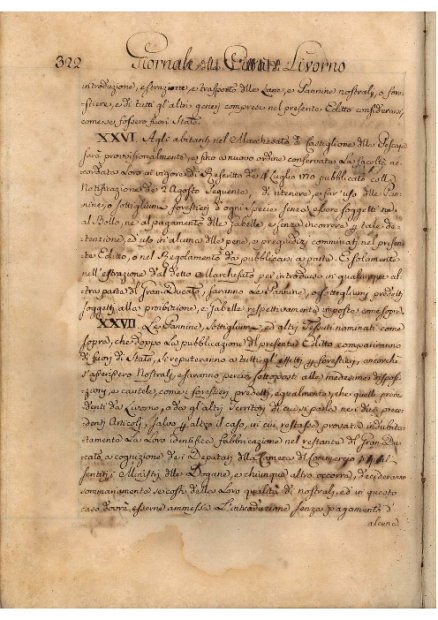 322 Giornale Livorno
introduzione, estrazione, e trasporto delle Lane, e Pannine nostrali, o fore-
stiere, e di tutti gl'altri generi compresi nel presente Editto considerarsi
come se fossero fuori Stato.
XXVI. Agli abitanti nel Marchesato di Castiglione della Pescaja
sarà provvisionalmente, e sino a nuovo ordine conservata La facoltà ac-
cordata Loro in vigore di Rescritto de' Luglio 1770 pubblicato colla
Notificazione de' 2 Agosto Seguente, di ritenere, e far uso delle Pan-
nine, e Sottigliumi forestieri d'ogni Specie senza essere soggetti nè
al Bollo, nè al pagamento delle Gabelle, e senza incorrere per tale de-
tenzione, ed uso in alcuna delle pene, e pregiudizj comminati nel presen-
te Editto, o nel Regolamento da pubblicarsi a parte. E solamente
nell'estrazione dal detto Marchesato per introdursi in qualunque al-
tra parte del Gran-Ducato, saranno Le Pannine, o Sottigliumi predetti
soggetti alla proibizione, e Gabelle respettivamente imposte come sopra
XXVII. Le Pannine, Sottigliumi, ed altri Tessuti nominati come
sopra, che doppo La pubblicazione del presente Editto compariranno
di fuori di Stato, si reputeranno a tutti gl'effetti per forestieri, ancorchè
s'asserissero Nostrali, e saranno perciò sottoposti alle medesime disposi-
zioni, e cautele, come i forestieri predetti, egualmente che quelli prove-
nienti da Livorno, o da gl'altri Territorj di cui si parla nei dieci prece-
denti Articoli, salvo per altro il caso, in cui restasse provata indubita-
tamente La Loro identifica fabbricazione nel restante del Gran Du-
cato, a cognizione dei Deputati della Camera di Commercio
sentiti i Ministri delle Dogane, e chiunque altro occorra, decideranno
sommariamente se costi della Loro qualità di nostrali, ed in questo
caso dovrà esserne ammessa L'introduzione senza pagamento d'
alcuna